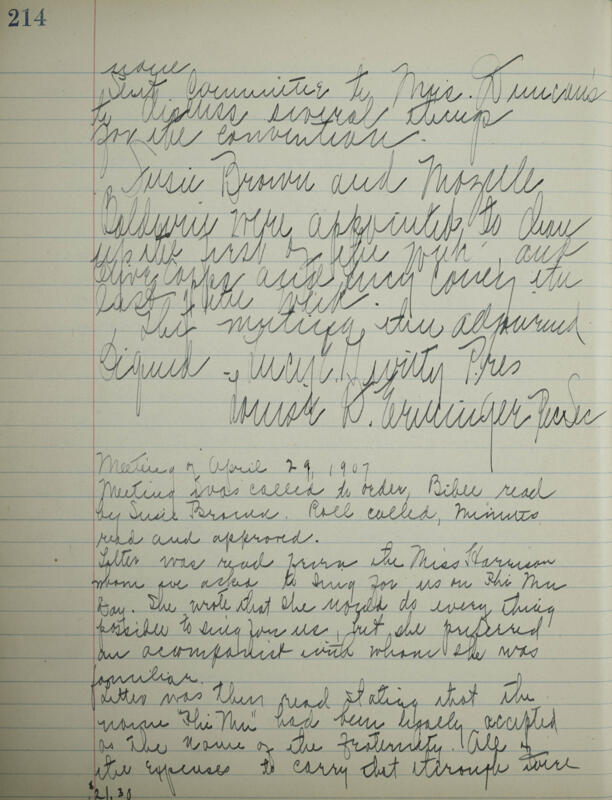 214
name
Sent Committee to Mrs. Duncan's
to discuss several things
for the convention.
Susie Brown and Mozelle
Baldwin were appointed to draw
up the first of the work, and
Olive Capps and Lucy Coney the
last of the week.
The meeting then adjourned
Signed - Lucy Pres
Louise B. Rec Sec
Meeting of April 29, 1907
Meeting was called to order, Bible read
by Susie Brown. Roll called, minutes
read and approved.
Letter was read from the Miss Harrison
whom we asked to sing for us on Phi Mu
Day. She wrote that she would do every thing
possible to sing for us, but she preferred
an acompanist with whom she was
familiar.
Letter was then read stating that the
name "Phi Mu" had been legally accepted
as the name of the Fraternity. All of
the expenses to carry that through were
$21.30